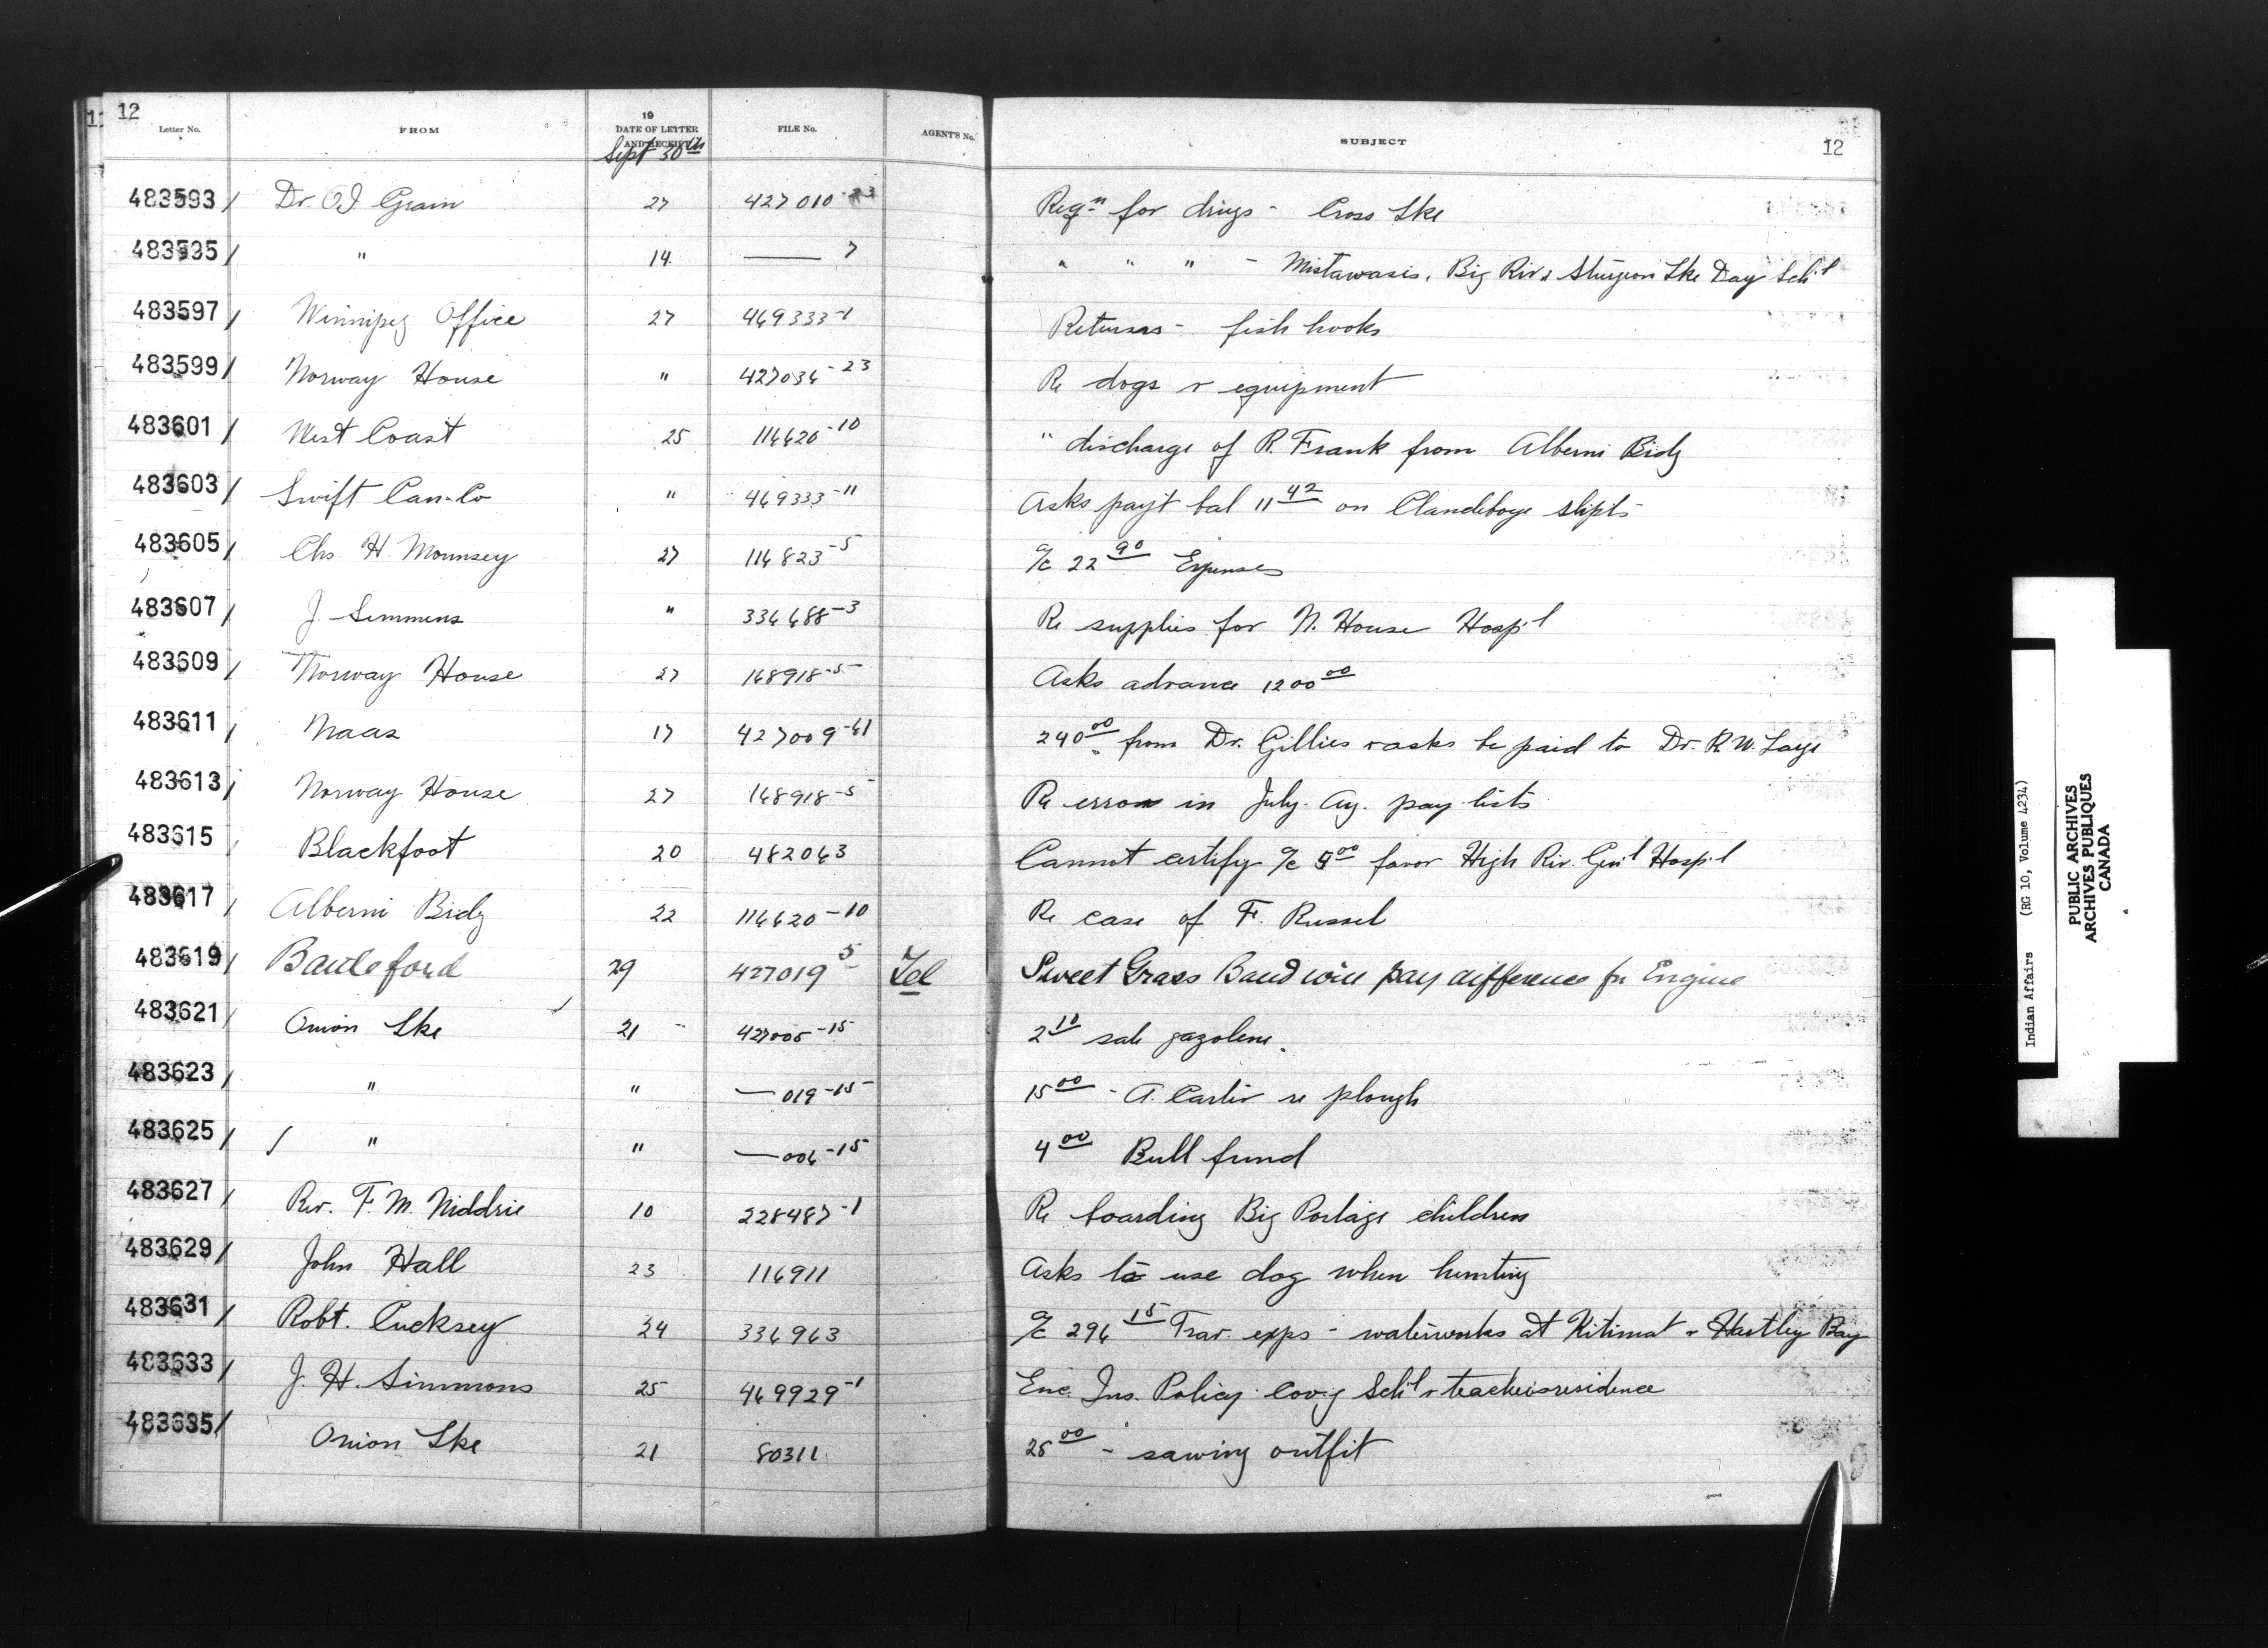 12
Letter No. FROM 19 DATE OF LETTER AND RECEIPT FILE No. AGENT'S No. SUBJECT 12
Sept 30th
483593 / Dr. O I Grain 27 427010-23 Reqn for drugs - Cross Lke
483595 / " 14 —— 7 " " " - Mistawasis, Big Riv & Sturgeon Lke Day Sch'l
483597 / Winnipeg Office 27 469333-1 Returns - fish hooks
483599 / Norway House " 427036-23 Re dogs & equipment
483601 / West Coast 25 116620-10 " discharge of R. Frank from Alberni Bidg
483603 / Swift Can. Co " 469333-11 Asks pay't bal 11 42 on Clandeboye shpts
483605 / Chs. H. Mounsey 27 116823-5 a/c 22 90 Expenses
483607 / J. Semmens " 336688-3 Re supplies for N. House Hosp'l
483609 / Norway House 27 168918-5 Asks advance 1200 00
483611 / Naas 17 427009-61 240 00 from Dr. Gillies & asks be paid to Dr. R. W. Large
483613 / Norway House 27 168918-5 Re error in July. Ag. pay lists
483615 / Blackfoot 20 482063 Cannot certify a/c 5 00 favor High Riv. Gen'l Hosp'l
483617 / Alberni Bidg 22 116620-10 Re case of F. Russel
483619 / Battleford 29 427019 5 Tel Sweet Grass Band will pay difference for Engine
483621 / Onion Lke 21 - 427005-15 2 10 sale gazolene.
483623 / " " — 019-15 15 00 - A. Carlir re plough
483625 / " " — 006-15 4 00 Bull fund
483627 / Rev. F. M. Niddrie 10 228487-1 Re boarding Big Portage children
483629 / John Hall 23 116911 Asks to use dog when hunting
483631 / Robt. Cucksey 24 336963 a/c 296 15 Trav. exps - waterworks at Kitimat & Hartley Bay
483633 / J. H. Simmons 25 469929-1 Enc. Ins. Policy cov'g Sch'l & teachers residence
483635 / Onion Lke 21 80311 25 00 - sawing outfit
Indian Affairs (RG 10, Volume 4234)
PUBLIC ARCHIVES
ARCHIVES PUBLIQUES
CANADA